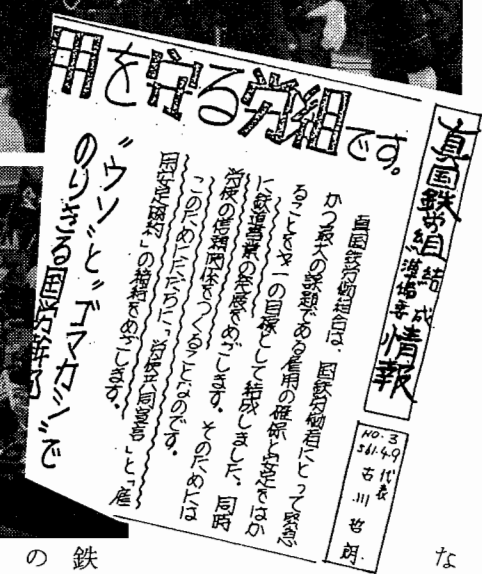 真国鉄労組結成準備委情報
NO.3
S61.4.9
代表
古川哲朗
用を守る労組です。
真国鉄労働組合は、国鉄労働者にとって緊急
かつ最大の課題である雇用の確保と安定をはか
ることを第一の目標として結成しました。同時
に鉄道事業の発展をめざします。そのためには
労使の信頼関係をつくることなのです。
このためにただちに、「労使共同宣言」と「雇
用安定協約」の締結をめざします。
“ウソ”と“ゴマカシ”で
のりきる国労幹部
の鉄
な